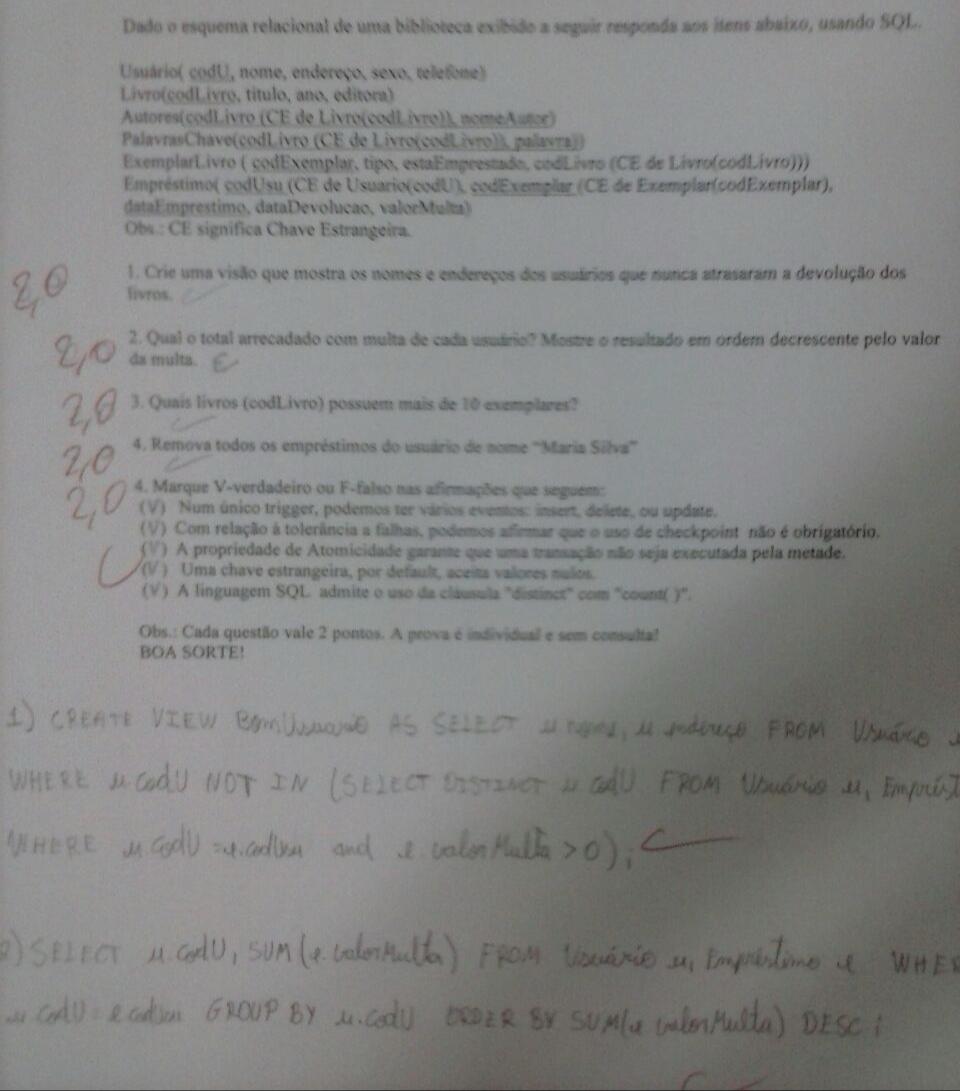 Dado o esquema relacional de uma biblioteca exibido a seguir responda aos itens abaixo, usando SQL.
Usuário( codU, nome, endereço, sexo, telefone)
Livro(codLivro, titulo, ano, editora)
Autores(codLivro (CE de Livro(codLivro)), nomeAutor)
PalavrasChave(codLivro (CE de Livro(codLivro)), palavra))
ExemplarLivro ( codExemplar, tipo, estaEmprestado, codLivro (CE de Livro(codLivro)))
Empréstimo( codUsu (CE de Usuario(codU), codExemplar (CE de Exemplar(codExemplar),
dataEmprestimo, dataDevolucao, valorMulta)
Obs.: CE significa Chave Estrangeira.
2,0
1. Crie uma visão que mostra os nomes e endereços dos usuários que nunca atrasaram a devolução dos
livros.
2,0
2. Qual o total arrecadado com multa de cada usuário? Mostre o resultado em ordem decrescente pelo valor
da multa.
2,0
3. Quais livros (codLivro) possuem mais de 10 exemplares?
2,0
4. Remova todos os empréstimos do usuário de nome "Maria Silva"
2,0
4. Marque V-verdadeiro ou F-falso nas afirmações que seguem:
(V) Num único trigger, podemos ter vários eventos: insert, delete, ou update.
(V) Com relação à tolerância a falhas, podemos afirmar que o uso de checkpoint não é obrigatório.
(V) A propriedade de Atomicidade garante que uma transação não seja executada pela metade.
(V) Uma chave estrangeira, por default, aceita valores nulos.
(V) A linguagem SQL admite o uso da cláusula "distinct" com "count( )".
Obs.: Cada questão vale 2 pontos. A prova é individual e sem consulta!
BOA SORTE!
1) CREATE VIEW BomUsuario AS SELECT u.nome, u.endereço FROM Usuário
WHERE u.codU NOT IN (SELECT DISTINCT u.codU FROM Usuário u,
WHERE u.codU = e.codUsu and e.valorMulta > 0);
2) SELECT u.codU, SUM(e.valorMulta) FROM Usuário u, Empréstimo e
u.codU = e.codUsu GROUP BY u.codU ORDER BY SUM(e.valorMulta) DESC;